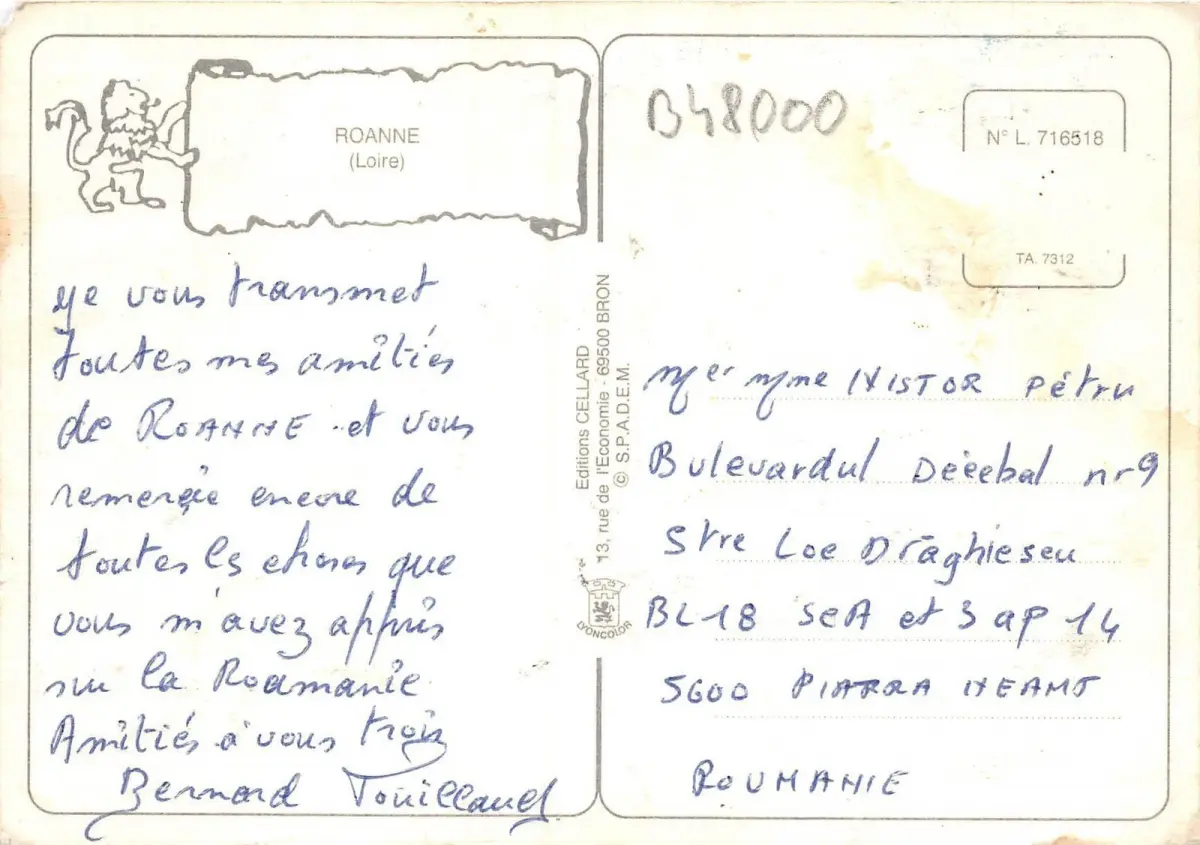 ROANNE
(Loire)
Je vous transmet
toutes mes amitiés
de ROANNE et vous
remercie encore de
toutes les choses que
vous m'avez appris
sur la Roumanie
Amitiés à vous trois
Bernard
Editions CELLARD
13, rue de l'Economie - 69500 BRON
© S.P.A.D.E.M.
LYONCOLOR
B48000
N° L. 716518
TA. 7312
Mr Mme NISTOR Pétru
Bulevardul Décebal nr 9
Stre Loc Drăghiescu
BL 18 Sc A et 3 ap 14
5600 PIATRA NEAMT
ROUMANIE